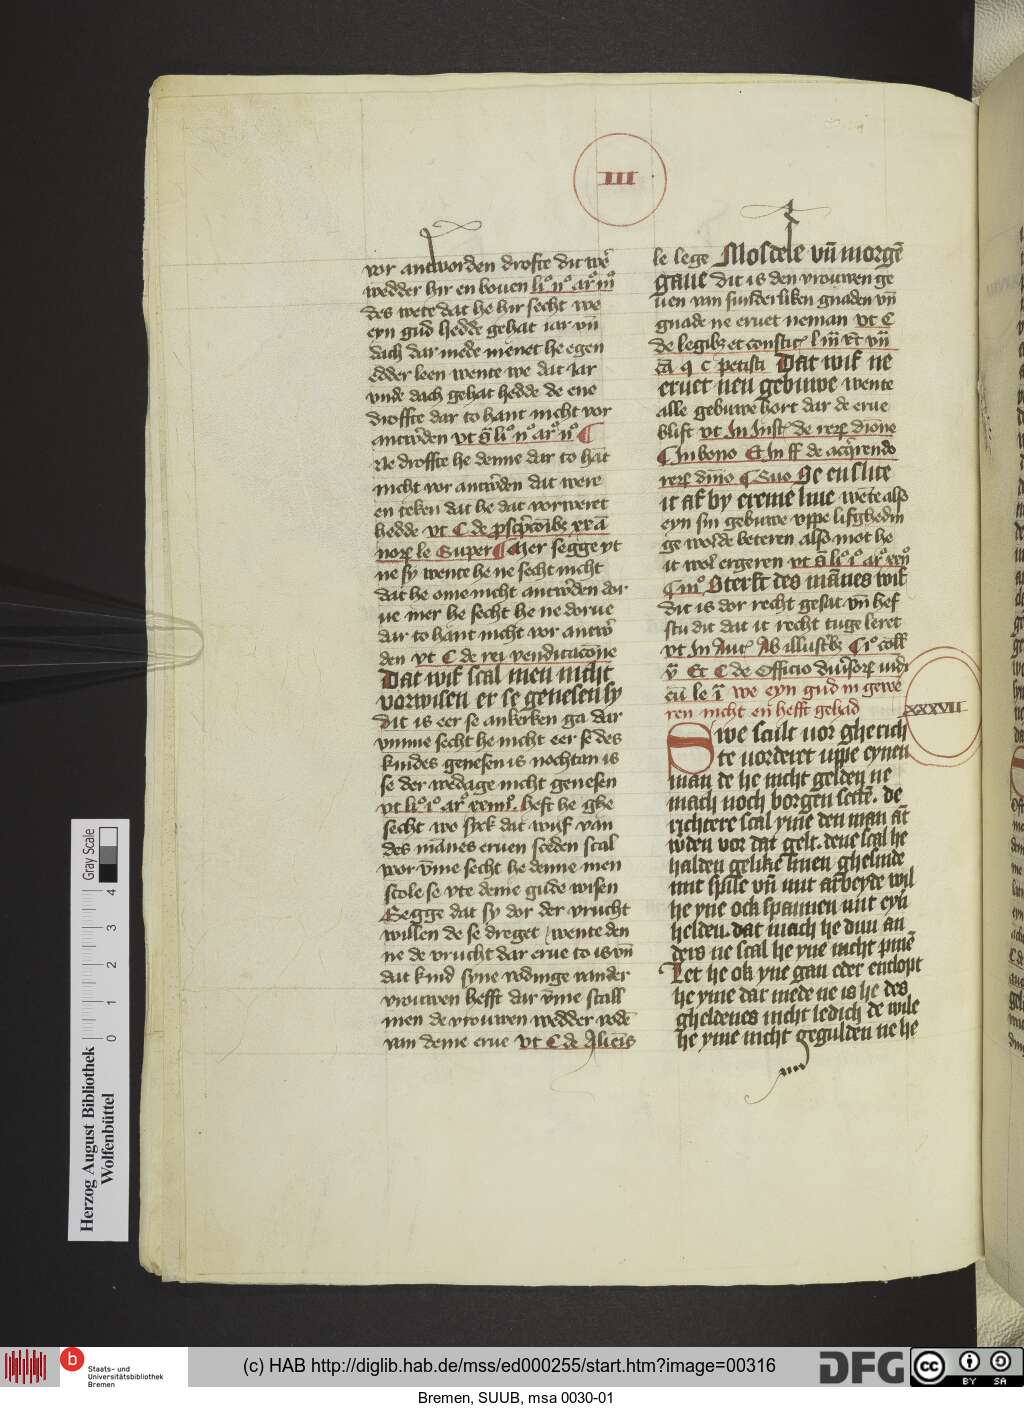 III
vor antworden drofte dit we᷑
wedder hir en bouen li° ii° ar° iii°
des wete dat he hir secht we
eyn gud hedde gehat iar vn̄
dach dar mede menet he egen
edder leen wente we dat Jar
vnde dach gehat hedde de ene
droffte dar to hant nicht vor
antw̄den vt s̄ li° ii° ar° ii° ¶
Ne droffte he denne dar to hāt
nicht vor antw̄den dat were
en teken dat he dat vorweret
hedde vt C de
le Super ¶ Mer segge yt
ne sy wente he ne secht nicht
dat he ome nicht antw̄den dor
ue mer he secht he ne dorue
dar to hant nicht vor antw̄
den vt C de rei venditacōne
Dat wif scal men nicht
vorwisen er se genesen sy
dit is eer se ankerken ga dar
vmme secht he nicht eer se des
kindes genesen is nochtan is
se der wedage nicht genesen
vt li° i° ar° xxxiii°. heft he ghe
secht wo syck dat wyf van
des mānes eruen sceden scal
wor vm̄e secht he denne men
scole se vte deme gude wisen
Segge dat sy dor der vrucht
willen de se dreget / wente den
ne de vrucht dar erue to is vn̄
dat kind syne vodinge van der
vrouwen hefft dar vm̄e scall
men de vrouwen wedder vodē
van deme erue vt C de Aliēis
le lege Mosdele vn̄ morgē
gaue dit is den vrouwen ge
uen van sunderliken gnaden vn̄
gnade ne eruet neman vt C
de legibꝫ et constit
C petisti Dat wif ne
eruet nen gebuwe wente
alle gebuwe hort dar de erue
blift vt In Inst de rerꝝ diōne
¶ In bono Et In ff de acq̄rendo
rerꝝ dn̄io ¶ Suo Ne en slite
it af by erenie liue wēte also
eyn sin gebuwe vppe lifghedin
ge wolde beteren also mot he
it wol ergeren vt s̄ li° i° ar° xxii°
¶ iii° Sterft des māues wif
dit is dor recht gesat vn̄ hef
stu dit dat it recht tuge leret
vt In Aut Ab illustbꝫ ¶ i° coll
v̄ Et C de Officio diuisorꝝ iudi
cū le ī we eyn gud in gewe
ren nicht en hefft gehad
XXXVII
Swe scult vor gherich
te vorderet vppe eynen
man de he nicht gelden ne
mach noch borgen setē. de
richtere scal yme den man āt
w̄den vor dat gelt. deue scal he
halden gelike sinen ghesinde
mit spise vn̄ mit arbeyde wil
he yne ock spannen mit eyn̄
helden. dat mach he dun an
ders ne scal he yne nicht pinē
Let he ok yne gan eder entlopt
he yme dar mede ne is he des
gheldenes nicht ledich de wile
he yme nicht gegulden ne he
Gray Scale
0 1 2 3 4
Herzog August Bibliothek
Wolfenbüttel
b
Staats- und
Universitätsbibliothek
Bremen
(c) HAB http://diglib.hab.de/mss/ed000255/start.htm?image=00316
DFG
cc
BY SA
Bremen, SUUB, msa 0030-01